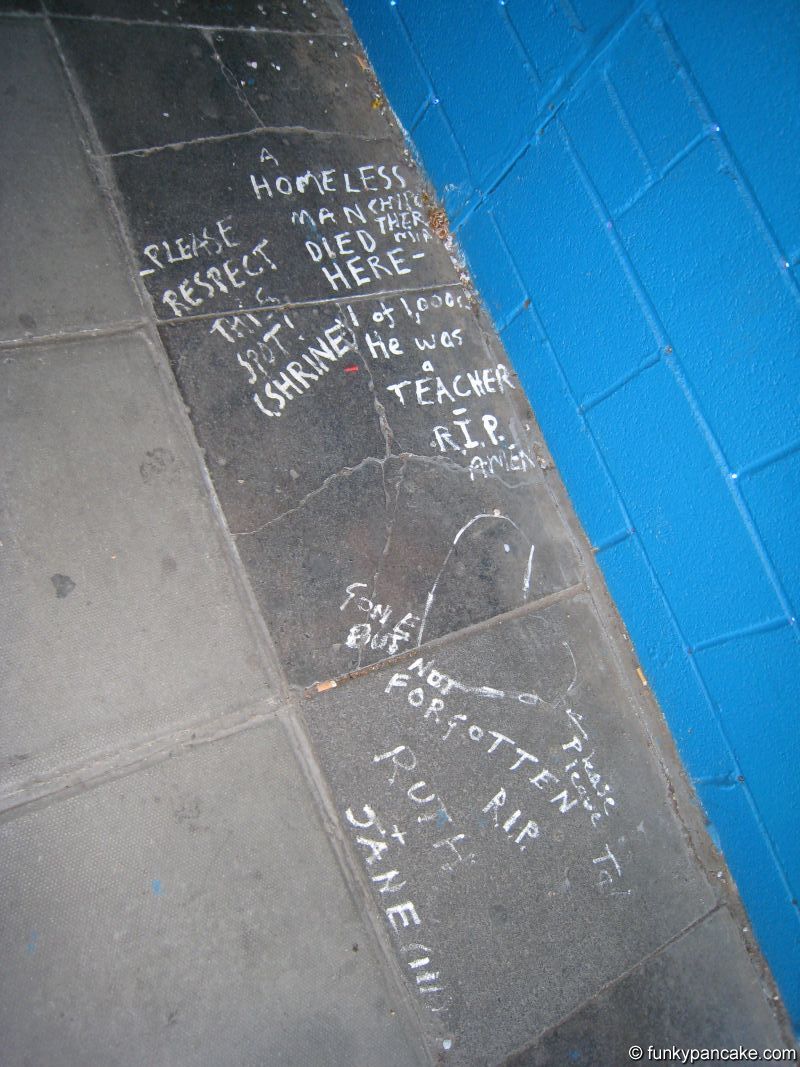 A
HOMELESS
MAN
DIED
HERE-
PLEASE
RESPECT
THIS
SPOT!
(SHRINE
1 of 1,000s
He was
a
TEACHER
-
R.I.P.
AMEN
GONE
BUT
NOT
FORGOTTEN
R.I.P.
RUTH
+
JANE
Please
To
© funkypancake.com